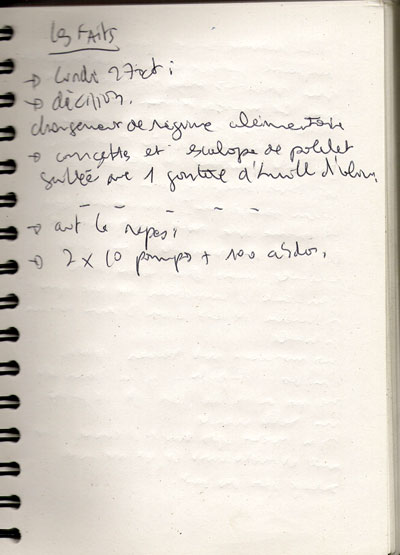 Les FAits
→ Lundi 27 oct :
→ décision.
changement de régime alimentaire
→ courgettes et escalope de poulet
grillée avec 1 goutte d'huile d'olive.
– – – – –
→ avt le repas :
→ 2 x 10 pompes + 100 abdos.